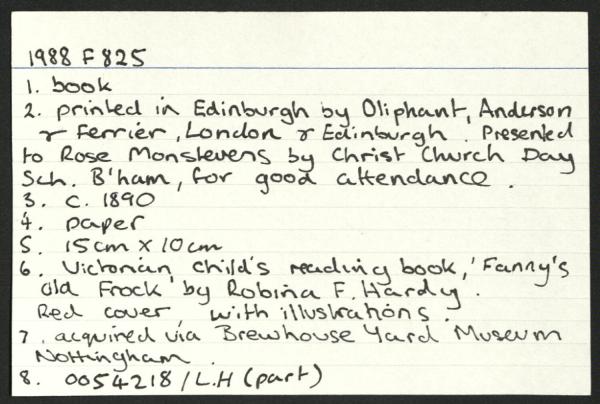 1988 F 825
1. book
2. printed in Edinburgh by Oliphant, Anderson
& Ferrier, London & Edinburgh. Presented
to Rose Monstevens by Christ Church Day
Sch. B'ham, for good attendance.
3. c. 1890
4. paper
5. 15cm x 10cm
6. Victorian child's reading book, 'Fanny's
old Frock' by Robina F. Hardy.
Red cover with illustrations.
7. acquired via Brewhouse Yard Museum
Nottingham.
8. 0054218/L.H (part)